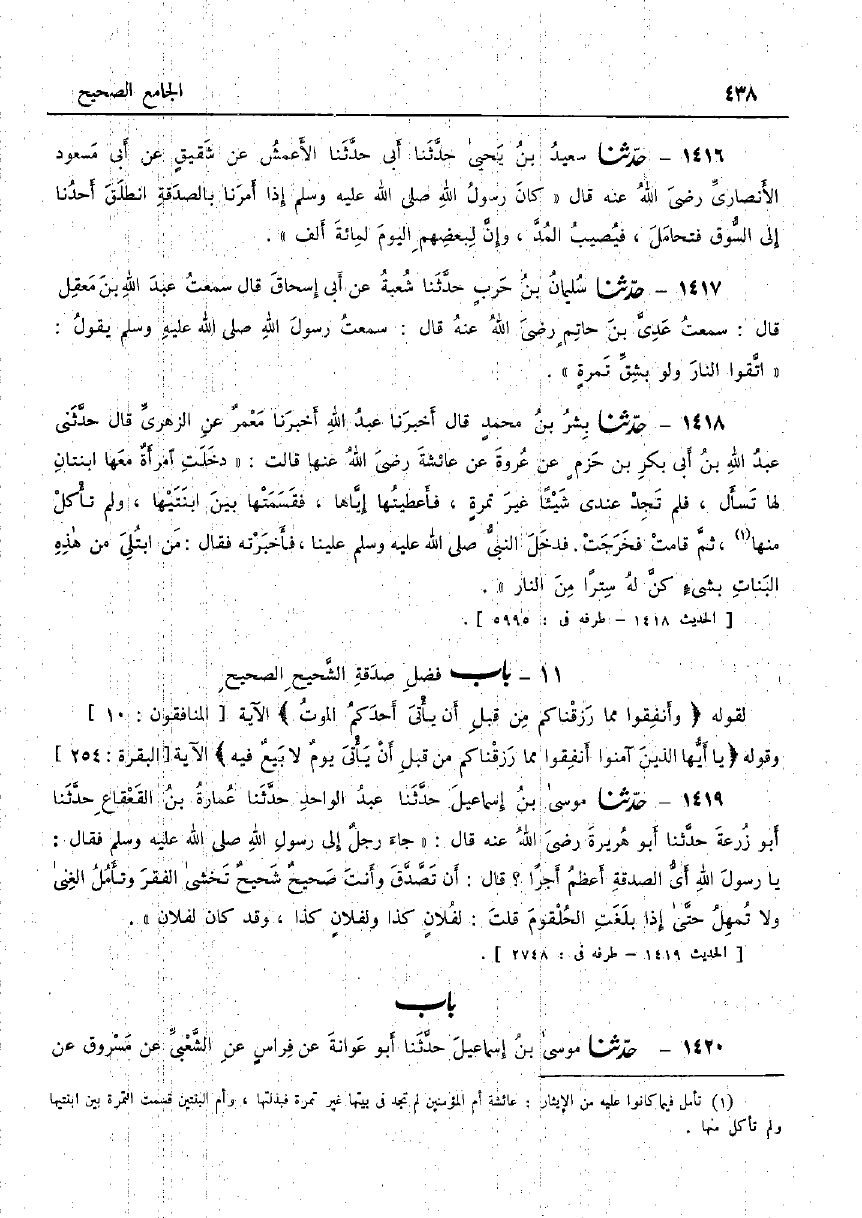 ٤٣٨ الجامع الصحيح
١٤١٦ – حدّثنا سعيدُ بنُ يَحيىٰ حدَّثَنا أَبى حدَّثَنا الأَعمشُ عن شَقيقٍ عن أَبى مَسعود
الأَنصارىِّ رضىَ اللهُ عنه قال « كانَ رسولُ اللهِ صلى الله عليه وسلم إِذا أَمرَنا بالصدَقةِ انطلَقَ أَحدُنا
إلى السُّوق فتحامَلَ ، فيُصيبُ المُدَّ ، وإنَّ لِبعضِهم اليومَ لمِائةَ أَلف » .
١٤١٧ – حدّثنا سُليمانُ بنُ حَربٍ حدَّثَنا شُعبةُ عن أَبى إسحاقَ قال سمعتُ عبدَ اللهِ بنَ مَعقِل
قال : سمعتُ عَدِىَّ بنَ حاتِمٍ رضىَ اللهُ عنهُ قال : سمعتُ رسولَ اللهِ صلى الله عليهِ وسلم يقولُ :
« اتَّقوا النارَ ولو بشِقِّ تَمرةٍ » .
١٤١٨ – حدّثنا بِشرُ بنُ محمدٍ قال أَخبرَنا عبدُ اللهِ أَخبرَنا مَعْمرٌ عنِ الزهرىِّ قال حدَّثَنى
عبدُ اللهِ بنُ أَبى بكرِ بن حَزمٍ عن عُروةَ عن عائشةَ رضىَ اللهُ عنها قالت : « دخَلَتِ آمرأَةٌ مَعَها ابنتانِ
لها تَسأَل ، فلم تَجِدْ عندى شَيْئًا غيرَ تمرةٍ ، فأَعطيتُها إيَّاها ، فقَسَمَتْها بينَ ابنَتَيْها ، ولم تأْكلْ
منها(١) ، ثمَّ قامتْ فخَرَجَتْ. فدخَلَ النبىُّ صلى الله عليه وسلم علينا ، فأَخبَرْته فقال : مَن ابتُلِىَ من هٰذِهِ
البَناتِ بشىءٍ كنَّ لهُ سِترًا مِنَ النار » .
[ الحديث ١٤١٨ – طرفه فى : ٥٩٩٥ ] .
١١ – باب فضلِ صدَقةِ الشَّحيحِ الصحيحِ
لقوله ﴿ وأَنفِقوا مما رَزَقْناكم مِن قبلِ أَن يأْتىَ أَحدَكمُ الموتُ ﴾ الآية [ المنافقون : ١٠ ]
وقوله ﴿ يا أَيُّها الذينَ آمنوا أَنفِقوا مما رَزَقْناكم من قبلِ أَنْ يَأْتىَ يومٌ لا بَيعٌ فيه ﴾ الآية [ البقرة : ٢٥٤ ]
١٤١٩ – حدّثنا موسىٰ بنُ إسماعيلَ حدَّثَنا عبدُ الواحدِ حدَّثَنا عُمارةُ بنُ القَعْقاعِ حدَّثَنا
أَبو زُرعةَ حدَّثَنا أَبو هُريرةَ رضىَ اللهُ عنه قال : « جاءَ رجلٌ إلى رسولِ اللهِ صلى الله عليه وسلم فقال :
يا رسولَ اللهِ أَىُّ الصدقةِ أَعظمُ أَجرًا ؟ قال : أَن تَصَّدَّقَ وأَنتَ صَحيحٌ شَحيحٌ تَخشىٰ الفقرَ وتأْمُلُ الغِنىٰ
ولا تُمهِلُ حتَّىٰ إذا بلَغَتِ الحُلْقومَ قلتَ : لفُلانٍ كذا ولفلانٍ كذا ، وقد كان لفلان » .
[ الحديث ١٤١٩ – طرفه فى : ٢٧٤٨ ] .
باب
١٤٢٠ – حدّثنا موسىٰ بنُ إسماعيلَ حدَّثَنا أَبو عَوانةَ عن فِراسٍ عنِ الشَّعْبىِّ عن مَسْروق عن
(١) تأمل فيما كانوا عليه من الإيثار : عائشة أم المؤمنين لم تجد فى بيتها غير تمرة فبذلتها ، وأم البنتين قسمت التمرة بين ابنتيها
ولم تأكل منها .